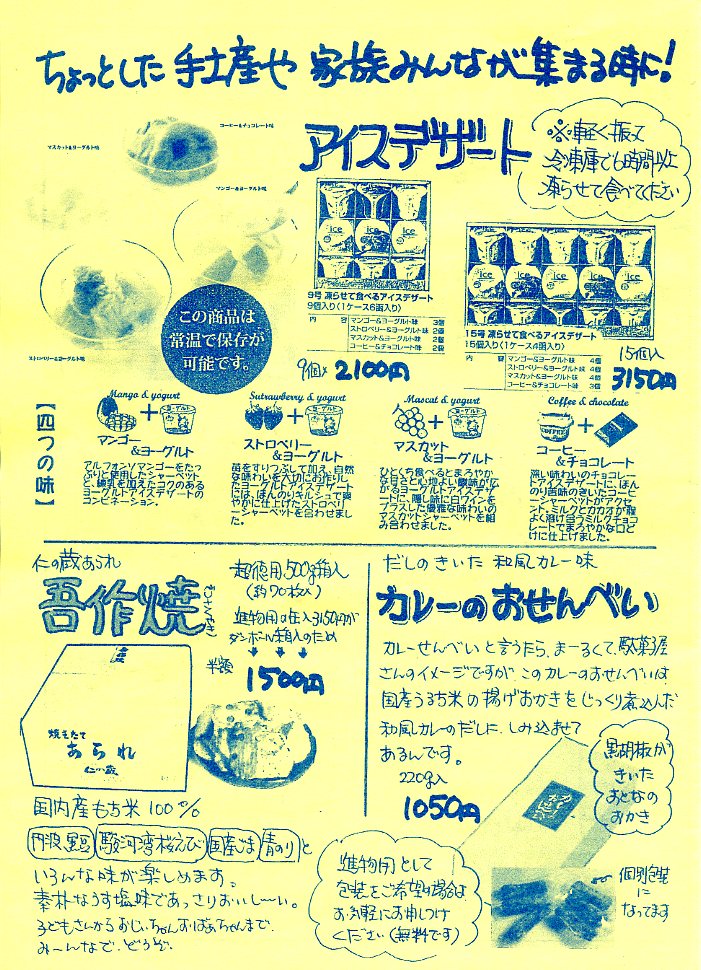 ちょっとした手土産や 家族みんなが集まる時に!
アイスデザート
※軽く振って
冷凍庫で6時間以上
凍らせて食べてください
コーヒー&チョコレート味
マスカット&ヨーグルト味
マンゴー&ヨーグルト味
ストロベリー&ヨーグルト味
この商品は
常温で保存が
可能です。
9号 凍らせて食べるアイスデザート
9個入り(1ケース6函入り)
内容 マンゴー&ヨーグルト味 3個
ストロベリー&ヨーグルト味 2個
マスカット&ヨーグルト味 2個
コーヒー&チョコレート味 2個
9個入 2100円
15号 凍らせて食べるアイスデザート
15個入り(1ケース4函入り)
内容 マンゴー&ヨーグルト味 4個
ストロベリー&ヨーグルト味 4個
マスカット&ヨーグルト味 4個
コーヒー&チョコレート味 3個
15個入
3150円
【四つの味】
Mango & yogurt
マンゴー
&ヨーグルト
アルフォンソマンゴーをたっ
ぷりと使用したシャーベット
と、練乳を加えたコクのある
ヨーグルトアイスデザートの
コンビネーション。
Sutrawberry & yogurt
ストロベリー
&ヨーグルト
苺をすりつぶして加え、自然
な味わいを大切にお作りし
たヨーグルトアイスデザート
には、ほんのりキルシュで爽
やかに仕上げたストロベリ
ーシャーベットを合わせまし
た。
Mascat & yogurt
マスカット
&ヨーグルト
ひとくち食べるとまろやか
な甘さと心地よい酸味が広
がるヨーグルトアイスデザ
ートに、隠し味に白ワインを
プラスした優雅な味わいの
マスカットシャーベットを組
み合わせました。
Coffee & chocolate
コーヒー
&チョコレート
深い味わいのチョコレー
トアイスデザートに、ほん
のり苦味のきいたコーヒ
ーシャーベットがアクセ
ント。ミルクとカカオが程
よく溶け合うミルクチョコ
レートでまろやかな口ど
けに仕上げました。
仁の蔵あられ
吾作焼
超徳用500g箱入
(約70枚入)
進物用の缶入3150円が
ダンボール箱入のため
半額
1500円
焼きたて
あられ
仁の蔵
国内産もち米100%
丹波黒豆 駿河湾桜えび 国産ごま 青のりと
いろんな味が楽しめます。
素朴なうす塩味であっさりおいし〜い。
子どもさんからおじいちゃんおばあちゃんまで、
み〜んなで、どうぞ。
だしのきいた 和風カレー味
カレーのおせんべい
カレーせんべいと言うたら、まーるくて、駄菓子屋
さんのイメージですが、このカレーのおせんべいは
国産うるち米の揚げおかきをじっくり煮込んだ
和風カレーのだしに、しみ込ませて
あるんです。
220g入
1050円
黒胡椒が
きいた
おとなの
おかき
個別包装
に
なってます
進物用として
包装をご希望の場合は
お気軽にお申しつけ
ください(無料です)